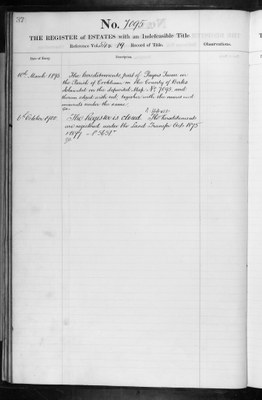 No. 7095
THE REGISTER of ESTATES with an Indefeasible Title.
Reference Vol. 19. Record of Title.
Date of Entry.
Description.
Observations.
March 189
The hereditaments part of Farm in
the Parish of Cookham in the County of Berks
delineated on the deposited Map No. 7095 and
thereon edged with red, together with the mines and
minerals under the same.
1st October 1900
The Register is closed. The hereditaments
are registered under the Land Transfer Acts 1875